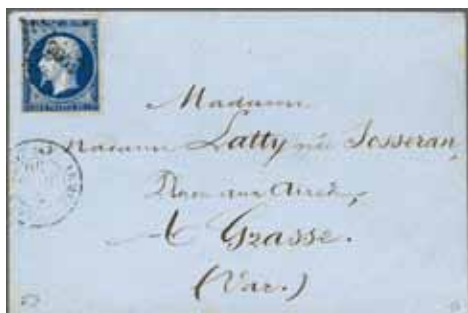 Madame
Madame Latty née Josseran,
Rue aux Aires,
A Grasse.
(Var.)